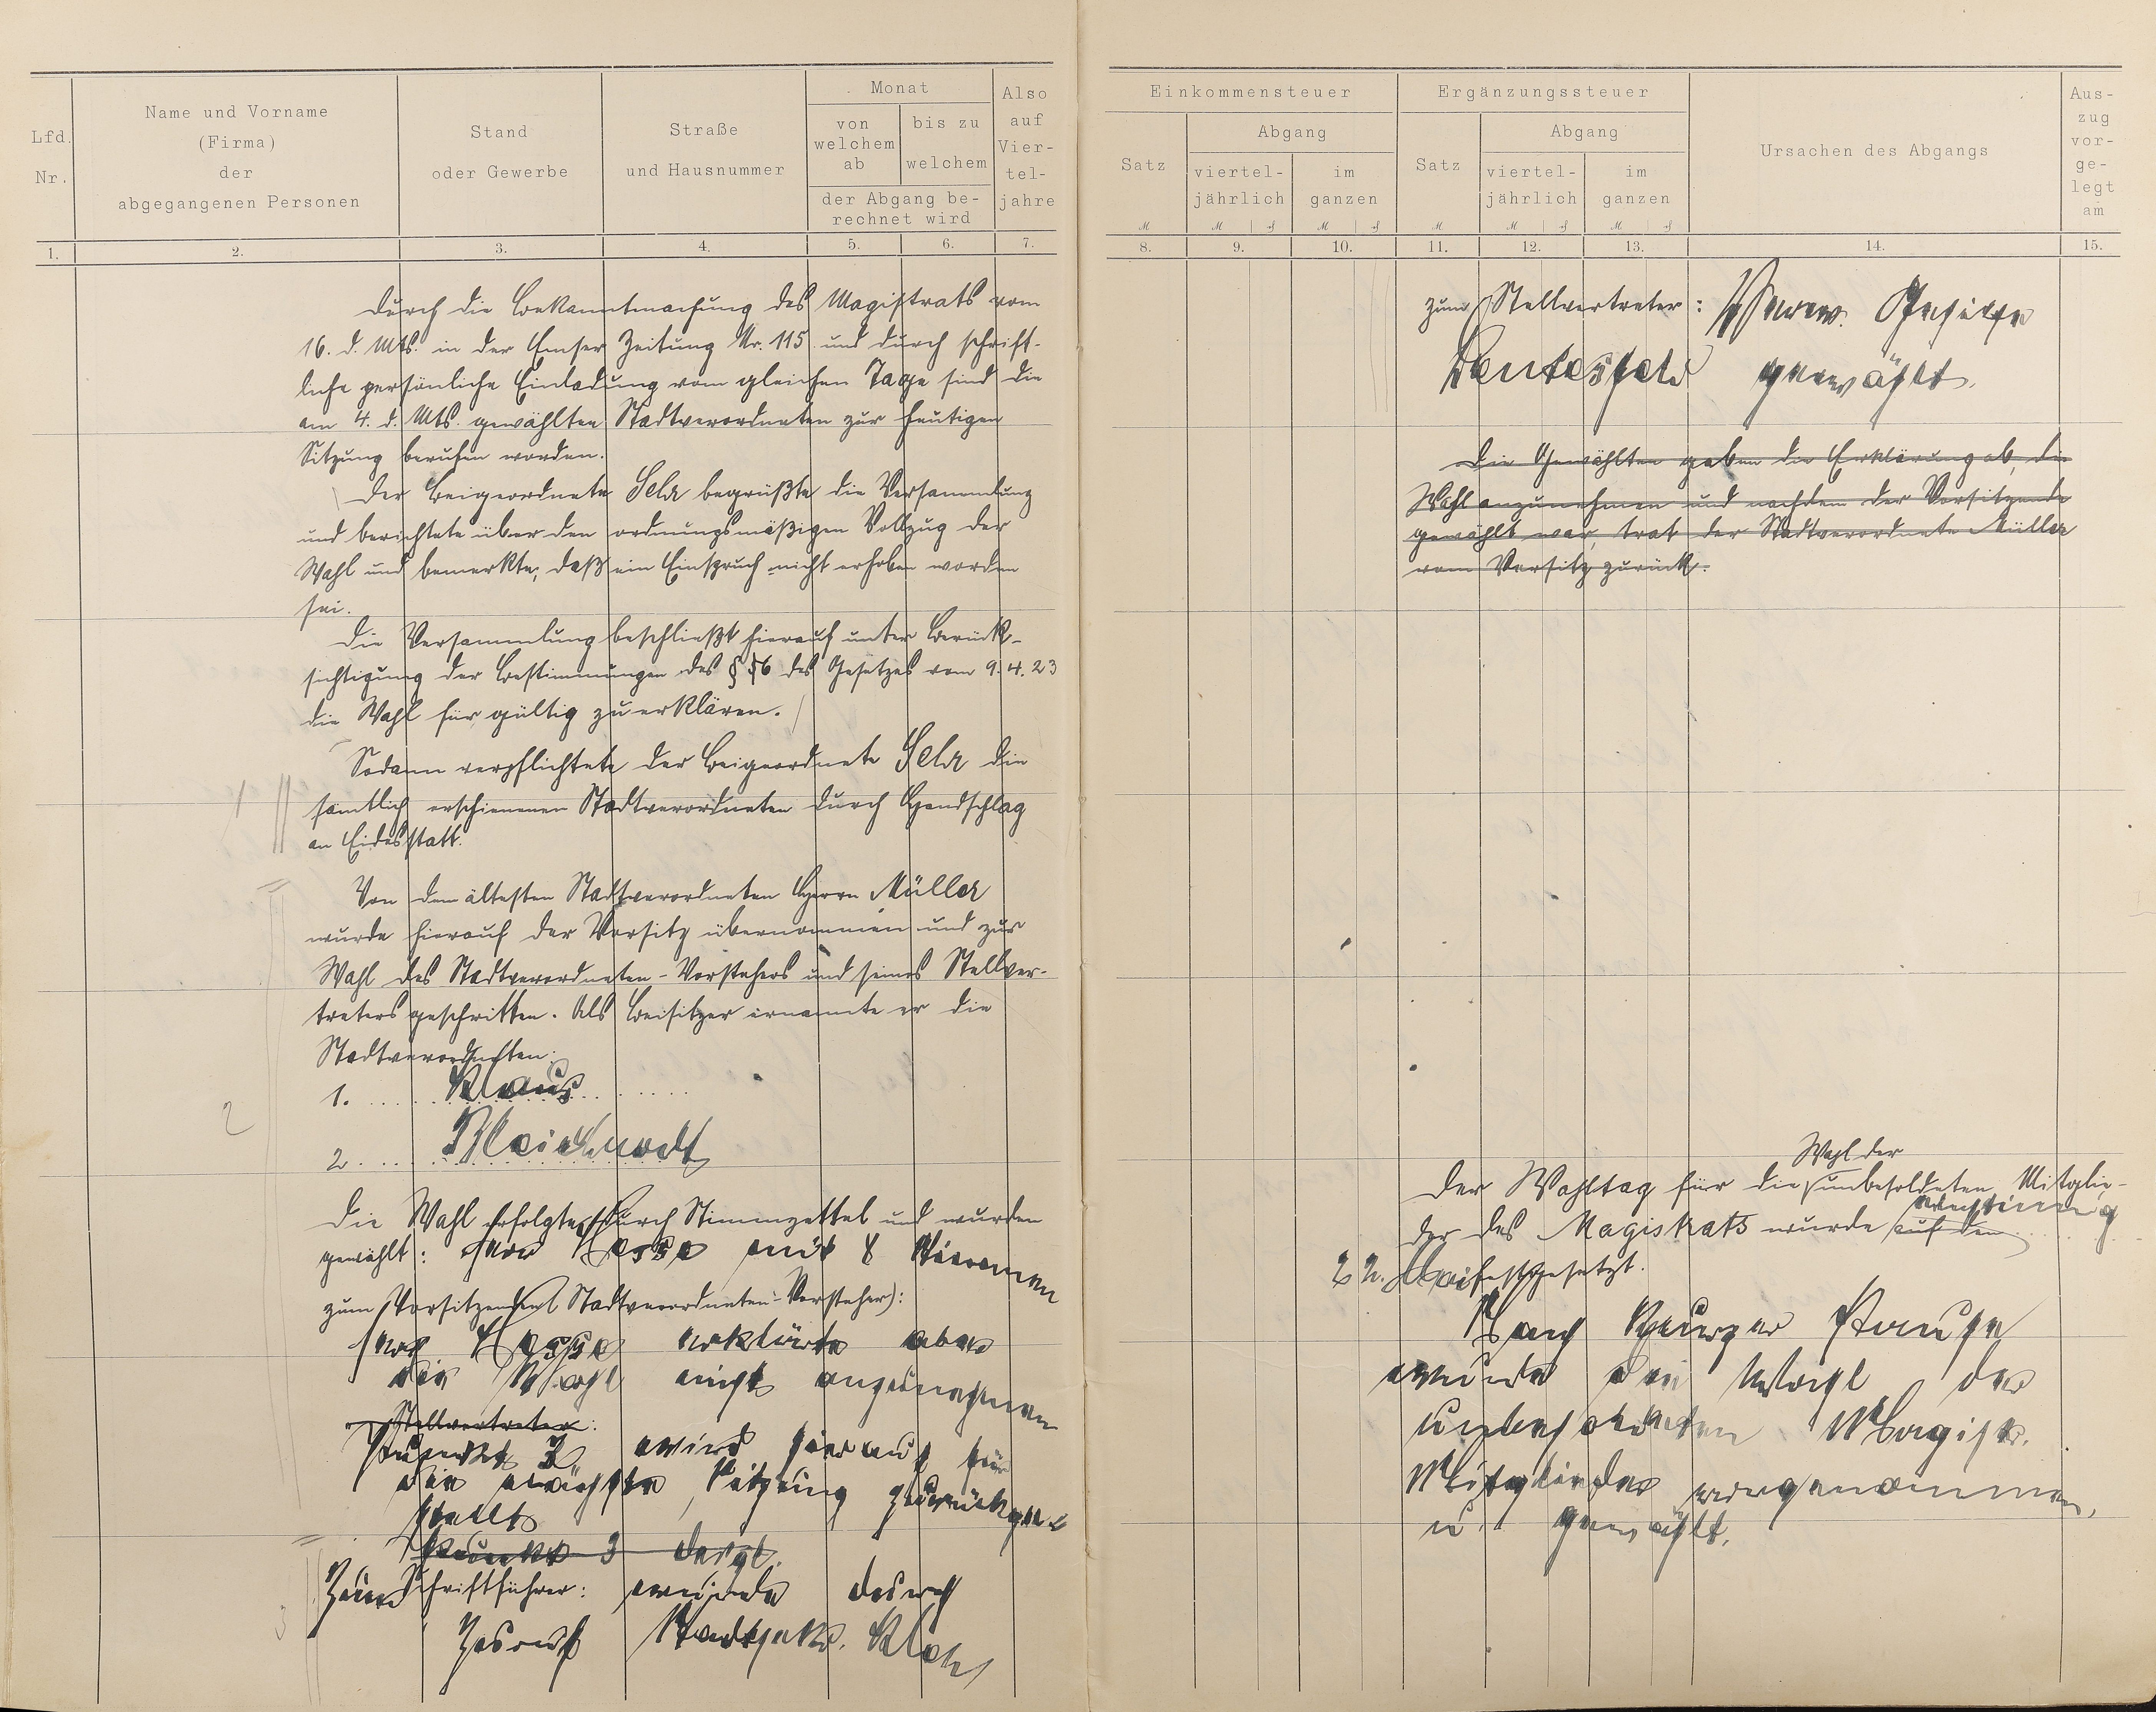 Lfd. Nr.
Name und Vorname
(Firma)
der
abgegangenen Personen
Stand
oder Gewerbe
Straße
und Hausnummer
Monat
von welchem ab
bis zu welchem
der Abgang be-
rechnet wird
Also auf Vier-
tel-
jahre
1. 2. 3. 4. 5. 6. 7.
Durch die Bekanntmachung des Magistrats vom
16. d. Mts. in der Emser Zeitung Nr. 115 und durch schrift-
liche persönliche Einladung vom gleichen Tage sind die
am 4. d. Mts. gewählten Stadtverordneten zur heutigen
Sitzung berufen worden.
Der Beigeordnete begrüßte die Versammlung
und berichtete über den ordnungsmäßigen Vollzug der
Wahl und bemerkte, daß ein Einspruch nicht erhoben worden
sei.
Die Versammlung beschließt hierauf unter Berück-
sichtigung der Bestimmungen des § 56 des Gesetzes vom 9.4.23
die Wahl für gültig zu erklären.
Sodann verpflichtete der Beigeordnete die
sämtlich erschienenen Stadtverordneten durch Handschlag
an Eidesstatt.
Von dem ältesten Stadtverordneten Herrn Müller
wurde hierauf der Vorsitz übernommen und zur
Wahl des Stadtverordneten-Vorstehers und seines Stellver-
treters geschritten. Als Beisitzer ernannte er die
Stadtverordneten:
1. Klaus
2.
Die Wahl erfolgte durch Stimmzettel und wurden
gewählt: Herr Hesse mit 8 Stimmen
zum Vorsitzenden (Stadtverordneten-Vorsteher):
Herr Hesse erklärte aber
die Wahl nicht anzunehmen
Stellvertreter:
Punkt 2 wird hierauf für
die nächste Sitzung zurückge-
stellt
Punkt 3 desgl.
Zum Schriftführer: wurde durch
Zuruf Stadtsekr.
Einkommensteuer
Satz
Abgang
viertel-
jährlich
im
ganzen
Ergänzungssteuer
Satz
Abgang
viertel-
jährlich
im
ganzen
Ursachen des Abgangs
Aus-
zug
vor-
ge-
legt
am
8. 9. 10. 11. 12. 13. 14. 15.
zum Stellvertreter:
gewählt.
Die Gewählten gaben die Erklärung ab, die
Wahl anzunehmen und nachdem der Vorsitzende
gewählt war, trat der Stadtverordnete Müller
vom Vorsitz zurück.
Wahl der
Der Wahltag für die unbesoldeten Mitglie-
der des Magistrats wurde auf den
22. Mai festgesetzt.
Nach kurzer Pause
wurde die Wahl der
unbesoldeten Magistr.
Mitglieder vorgenommen,
u. gewählt.